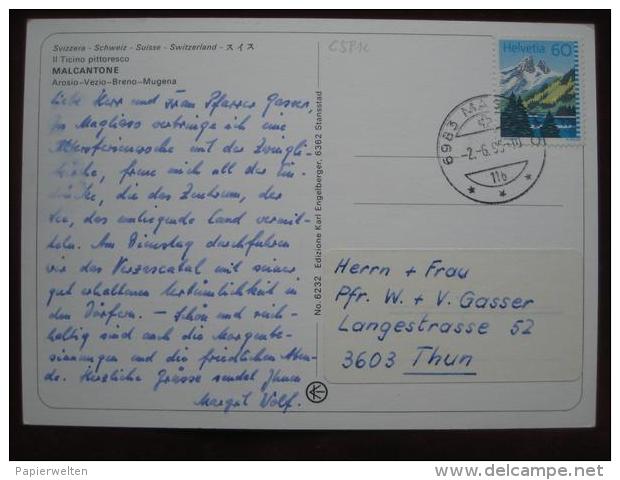 Svizzera - Schweiz - Suisse - Switzerland - スイス
Il Ticino pittoresco
MALCANTONE
Arosio-Vezio-Breno-Mugena
Liebe Herr und Frau Pfarrer Gasser,
In Magliaso verbringe ich eine
Altersferienwoche mit der Zwingli-
kirche, freue mich all der Ein-
drücke, die das Zentrum, der
See, das umliegende Land vermit-
teln. Am Dienstag durchfuhren
wir das Verzascatal mit seiner
gut erhaltenen Urtümlichkeit in
den Dörfern. – Schön und reich-
haltig sind auch die Morgenbe-
sinnungen und die friedlichen Aben-
de. Herzliche Grüsse sendet Ihnen
Margrit Wolf.
No. 6232 Edizione Karl Engelberger, 6362 Stansstad
Helvetia 60
6983
-2.-6.
11b
Herrn + Frau
Pfr. W. + V. Gasser
Langestrasse 52
3603 Thun
Papierwelten
delcampe.net